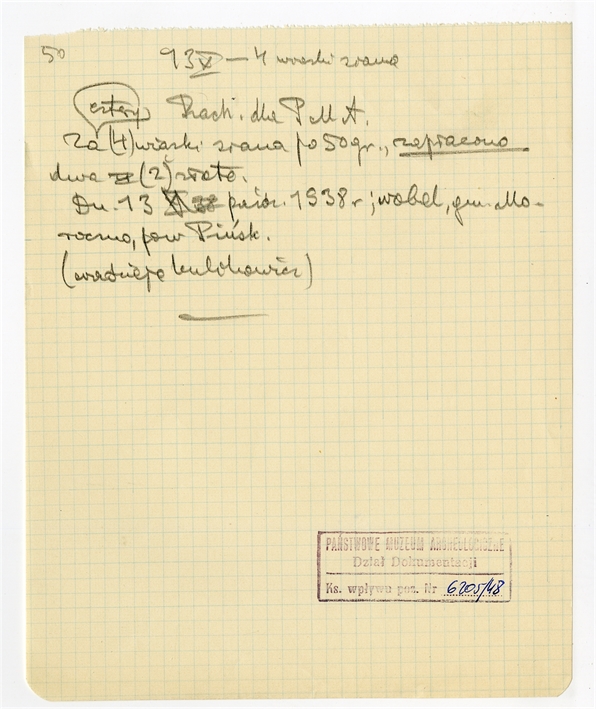 50
93 X — 4 wiązki siana
cztery
Rach. dla P.M.A.
Za (4) wiązki siana po 50 gr., zapłacono
dwa (2) złote.
Dn. 13 paźdz. 1938 r; Wobel, gm. Mo-
roczno, pow Pińsk.
(Kulohowicz)
PAŃSTWOWE MUZEUM ARCHEOLOGICZNE
Dział Dokumentacji
Ks. wpływu poz. Nr 6205/48